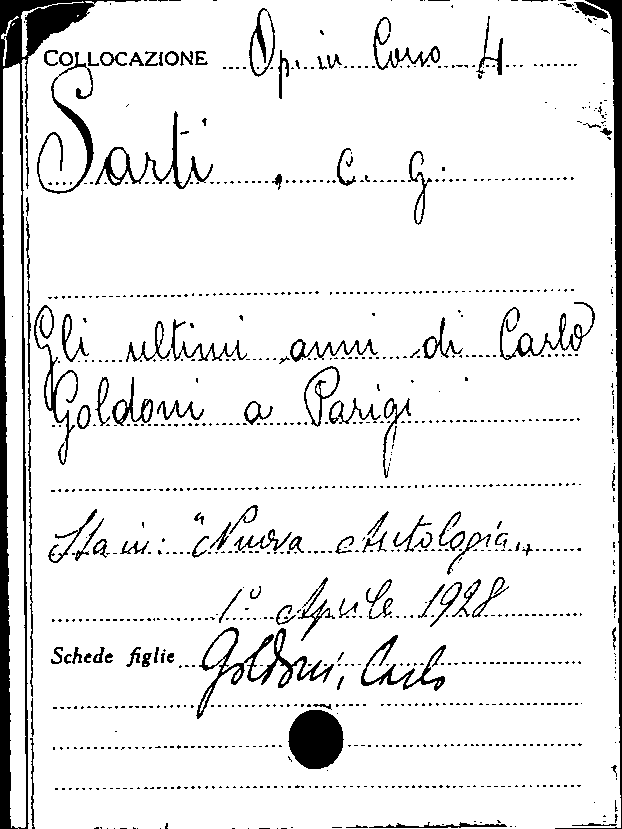 COLLOCAZIONE Op. in Corso 4
Sarti, C. G.
Gli ultimi anni di Carlo
Goldoni a Parigi
Sta in: "Nuova Antologia„
1º Aprile 1928
Schede figlie Goldoni, Carlo